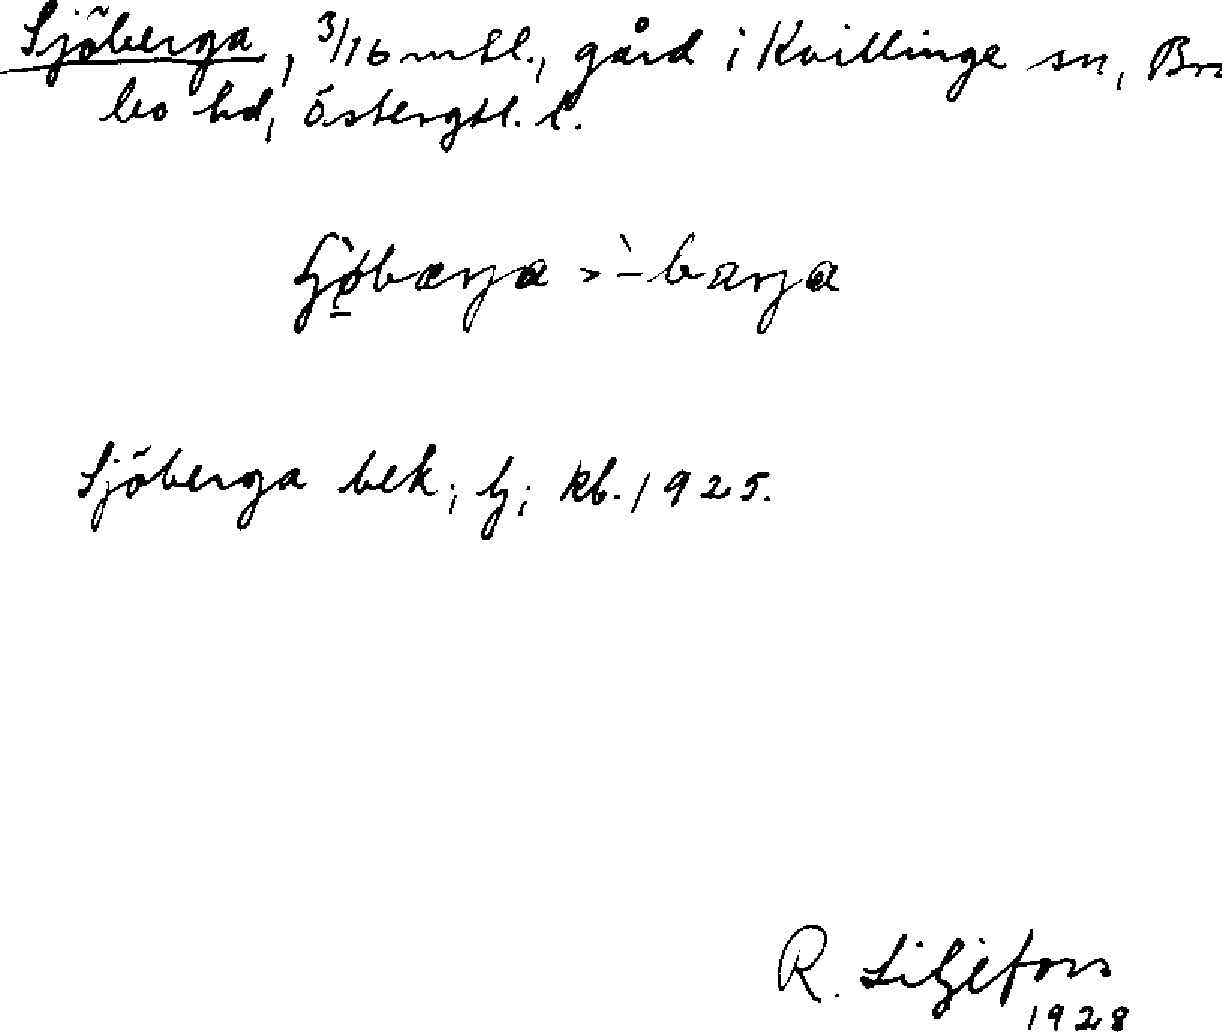 Sjöberga, 3/16 mtl., gård i Kvillinge sn, Bro
bo hd, Östergtl. l.
Sjöberga bek; lj; kb. 1925.
R. Liljefors
1928